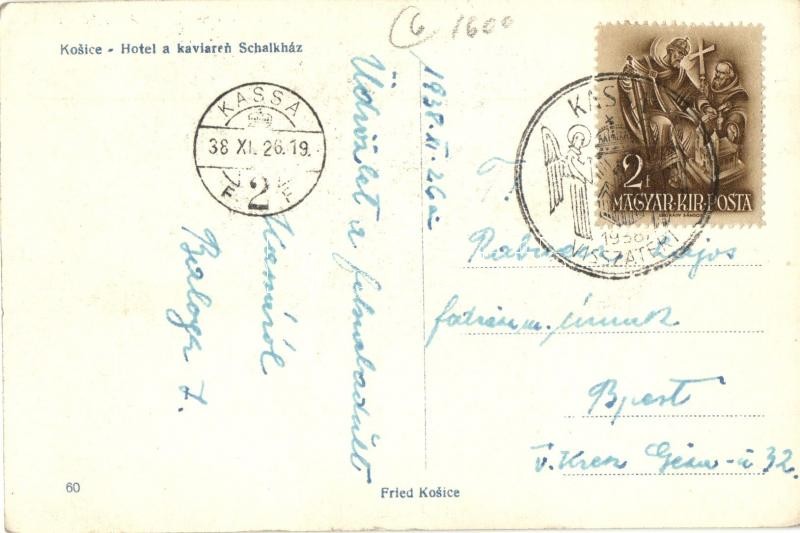 Košice - Hotel a kaviareň Schalkház
6 1600
KASSA
38 XI. 26. 19.
F 2 F
1938. XI. 26 án
Üdvözlet a felszabadult
Kassáról
Balogh I.
KASSA
1938
VISSZATÉRT
2f
MAGYAR·KIR·POSTA
T.
Lajos
úrnak
Bpest
V. Géza-u 32.
60
Fried Košice